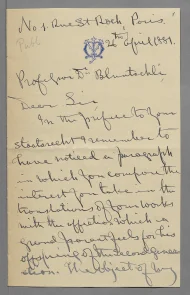 No 1. Rue St Roch, Paris.
26th April 1881.
Professor Dr Bluntschli
Dear Sir
In the preface to your
I remember to
have noticed a paragraph
in which you compare the
interest you take in the
translations of your works
with the affection which a
grand parent feels for his
offspring of the second gener
ation. The object of my